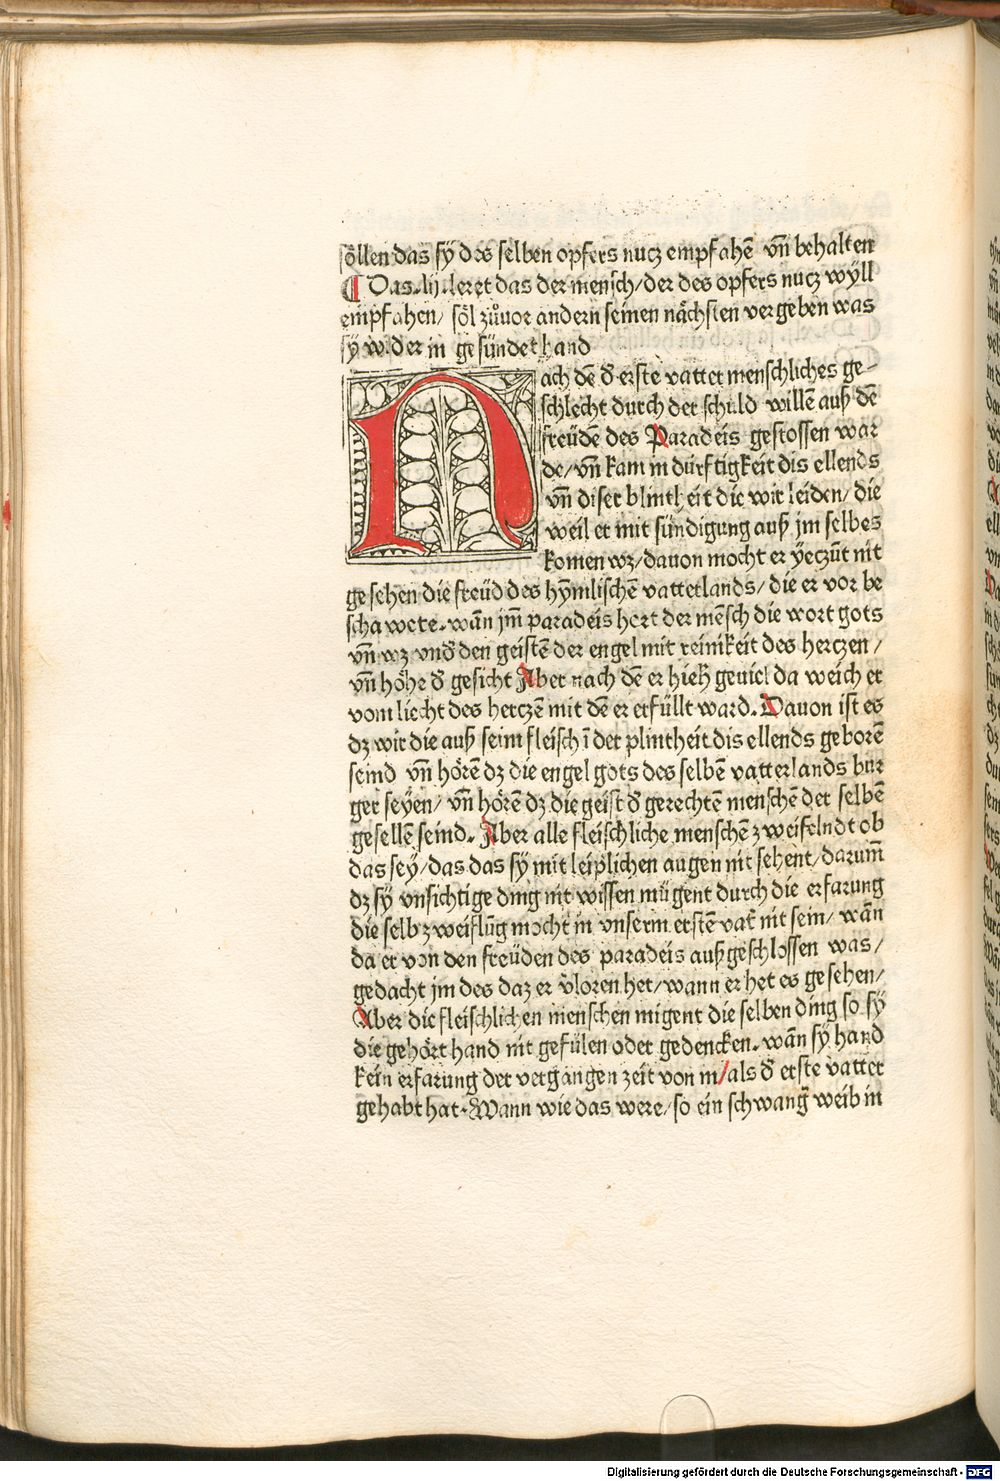 söllen das sy̆ des selben opfers nucz empfahē vn̄ behalten
¶ Das .lij. leret das der mensch/ der des opfers nucz wyll
empfahen/ söl zůuor andern seinen nächsten vergeben was
sy̆ wider in gesündet hand
Nach dē d̕ erste vatter menschliches ge⸗
schlecht durch der schuld willē auß dē
freüdē des Paradeis gestossen war
de/ vn̄ kam in dürftigkeit dis ellends
vn̄ diser blintheit die wir leiden/ die
weil er mit sündigung auß jm selbes
komen wz/ dauon mocht er yeczūt nit
gesehen die freüd des hy̆mlischē vatterlands/ die er vor be
schawete. wān jm̄ paradeis hort der mēsch die wort gots
vn̄ wz vnd̕ den geistē der engel mit reinikeit des herczen/
vn̄ höhe d̕ gesicht Aber nach dē er hieh̕ geuiel da weich er
vom liecht des herczē mit dē er erfüllt ward. Dauon ist es
dz wir die auß seim fleisch ī der plintheit dis ellends geborē
seind vn̄ hörē dz die engel gots des selbē vatterlands bur
ger seyen/ vn̄ hörē dz die geist d̕ gerechtē menschē der selbē
gesellē seind. Aber alle fleischliche menschē zweifelndt ob
das sey/ das das sy̆ mit leiplichen augen nit sehent/ darum̄
dz sy̆ vnsichtige ding nit wissen mügent durch die erfarung
die selb zweiflūg mocht in vnserm erstē vat̕ nit sein/ wān
da er von den freüden des paradeis außgeschlossen was/
gedacht jm des daz er v̕loren het/ wann er het es gesehen/
Aber die fleischlichen menschen migent die selben ding so sy̆
die gehört hand nit gefülen oder gedencken. wān sy̆ hand
kein erfarung der vergangen zeit von in/ als d̕ erste vatter
gehabt hat. Wann wie das were/ so ein schwang̕ weib in
Digitalisierung gefördert durch die Deutsche Forschungsgemeinschaft - DFG